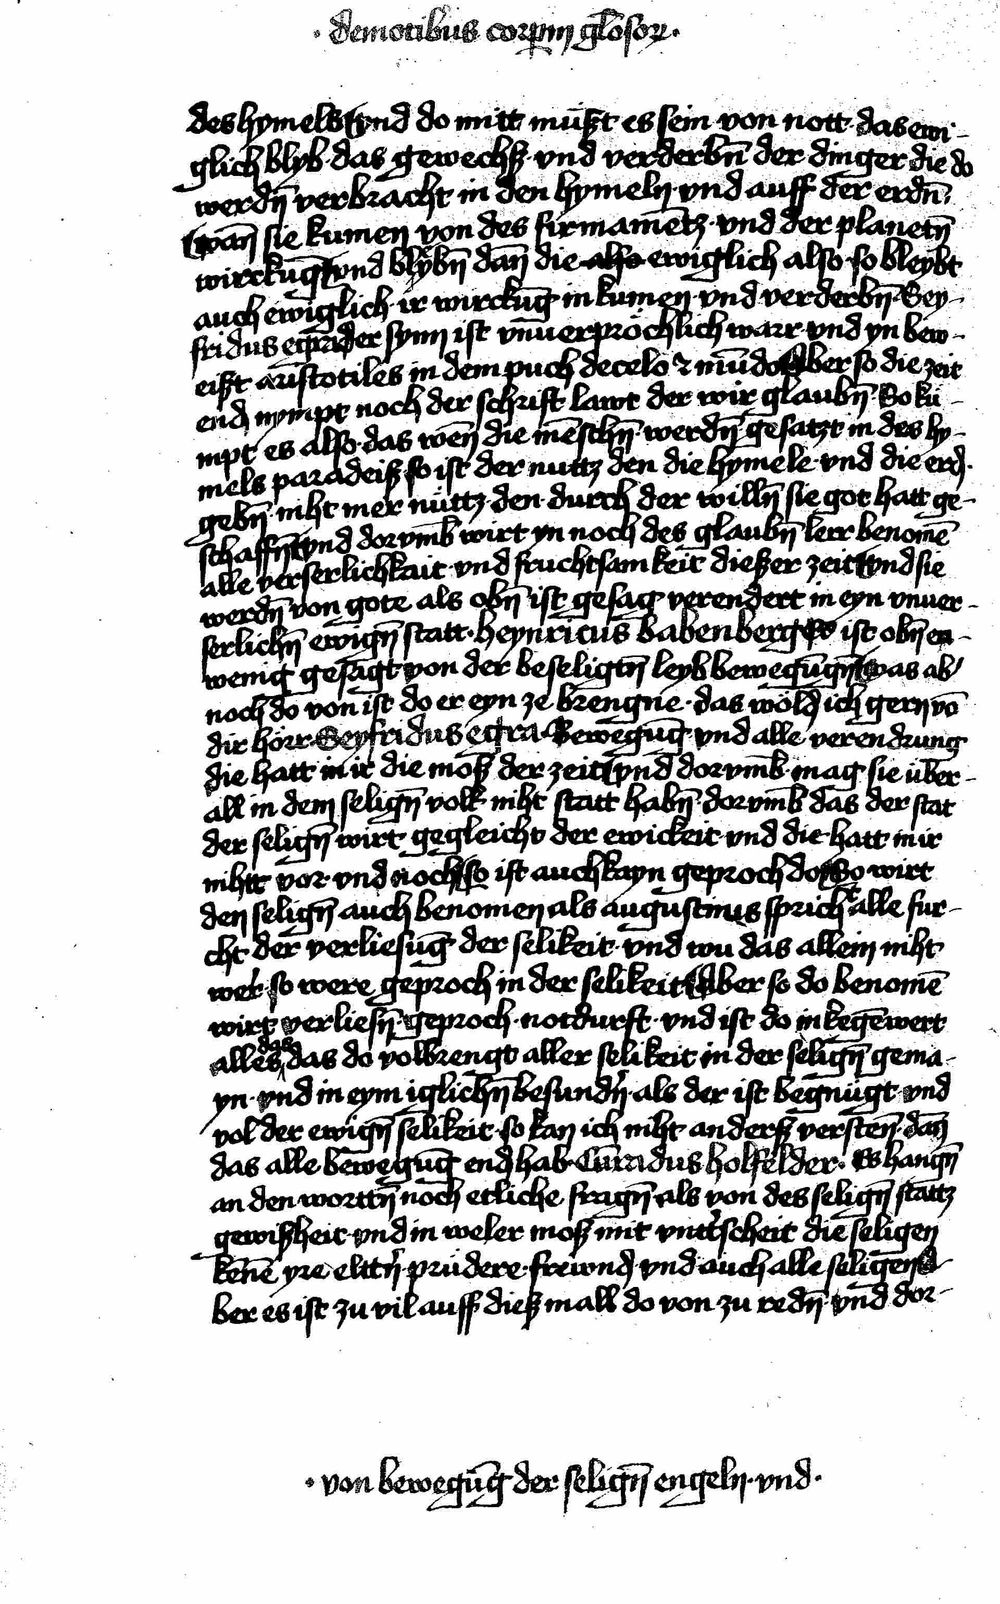 · demotibus corpm̄ gl̄osoꝝ ·
des hymels vnd do mitt müst es sein von nott · das ewi-
glich blyb · das gewechß · vnd verderbn̄ der dinger die do
werdn̄ verbracht in den hymeln vnd auff der erdn̄ ·
wan̄ sie kumen von des firmamētz · vnd der planetn̄
wirckūg vnd blybn̄ dan̄ die ewiglich also · so bleybt
auch ewiglich ir wirckūg in kumen · vnd verderbn̄ · Sey-
fridus egra der synn ist vnuerpröchlich warr · vnd yn bew-
eißt aristotiles in dem puch decelo ⁊ mūdo Aber so die zeit
end nympt noch der schrift lawt der wir glaubn̄ · So ku-
mpt es also · das wen̄ die mēschn̄ · werdn̄ gesatzt in des hy-
mels paradeiß so ist der nuttz den die hymele · vnd die erd ·
gebn̄ · niht mer nüttz · den · durch der willn̄ sie got hatt ge-
schaffn̄ vnd dorvmb wirt yn noch des glaubn̄ lerr benomē
alle verserlichkait · vnd fruchtsamkeit dießer zeit vnd sie
werdn̄ von gote als obn̄ ist gesag verendert in eyn vnuer-
serlichn̄ ewign̄ statt · heynricus babenberger ist obn̄ en-
wenig gesagt von der beseligtn̄ leyb bewegūgn̄ was ab'
noch do von ist do er eyn ze brengne · das wöld ich gern vō
dir hörr · Seyfridus egra · Bewegūg vnd alle verendrung
die hatt in ir die moß der zeit vnd dorvmb · mag sie über-
all in dem selign̄ volk niht statt habn̄ · dorvmb das der stat
der selign̄ wirt gegleicht der ewickeit vnd die hatt mir
nihtt vor · vnd noch so ist auch kayn geproch do So wirt
den selign̄ auch benomen als augustinus sprich alle fur-
cht der verliesūg der selikeit · vnd wu das allein niht
wer · so were geproch in der selikeit Aber so do benomē
wirt verliesn̄ · geproch · notdurft · vnd ist do in kegēwert
alles das das do volbrengt aller selikeit in der selign̄ gema-
yn · vnd in eym iglichn̄ besundn̄ · als der ist begnügt · vnd
vol der ewign̄ selikeit · so kan ich niht anderß versten̄ · dan̄
das alle bewegūg end hab · Cūradus holfelder · Es hangn̄
an den worttn̄ noch etliche fragn̄ · als von des selign̄ stattz
gewißheit · vnd in weler moß mit vnt'scheit die seligen
kēne yre elttn̄ · prüdere · frewnd vnd auch alle seligen A-
ber es ist zu vil auff dieß mall do von zu redn̄ · vnd dor-
· von bewegūg der selign̄ engeln · vnd ·